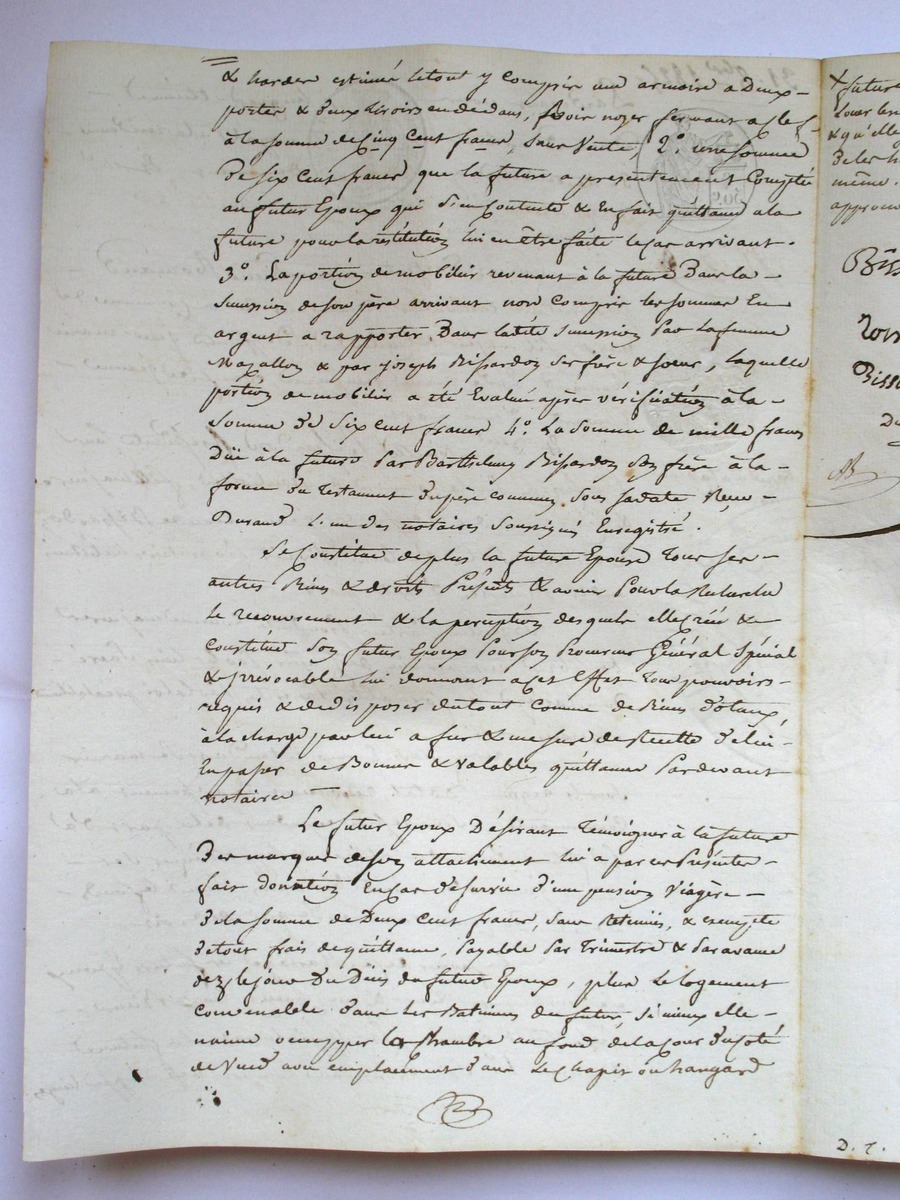 & hardes estimés le tout y compris une armoire a Deux
portes & deux tiroirs en dédans, Bois noyer fermant a clef
à la somme de Cinq Cent francs, sans Vente, 2°. une somme
De six Cent francs que la future a présentement Compté
au futur Epoux qui s'en Contente & En fait quittance a la
future pour la restitution lui en être faite le cas arrivant.
3°. La portion de mobilier revenant à la future Dans la
sucession de son père arrivant non compris les sommes En
argent a rapporter Dans ladite sucession Par La femme
Magallon & par joseph Bissardon ses frère & soeur, laquelle
portion de mobilier a été Evalué après vérification à la
somme De Six Cent francs 4°. La somme de mille francs
Düe à la future Par Barthelemy Bissardon son frère à la
forme du Testament du père commun, sous sa date Reçu
Durand L'un des notaires soussignés Enregistré.
Se Constitue de plus la future Epouse Tous ses
autres Biens & droits Présents & avenir Pour la Recherche
le recouvrement & la perception desquels elle créé &
constitue son futur Epoux Pour son Procureur Général Spécial
& irrévocable lui donnant a cet Effet Tous pouvoirs
requis & de disposer du tout comme de Biens Dotaux,
à la charge par lui a fur & mesure de Recette De lui
En passer de Bonnes & Valables quittances Pardevant
notaires
Le futur Epoux Désirant Témoigner à la future
Des marques de son attachement lui a par ces Présentes
fait donation En cas de survie D'une pension Viagère
De la somme de Deux Cent francs, sans Retenues, & exempte
De tout frais de quittance, Payable Par Trimestre & Par avance
dez le jour Du Décès du futur Epoux, plus Le logement
convenable Dans Les Batimens du futur, si mieux elle
n'aime occupper la Chambre au fond de la Cour Du coté
de avec emplacement Dans Le Chapit ou hangard
+ future
& qu'elle
de les h
même.
approuv
Biss
Biss
D. T.